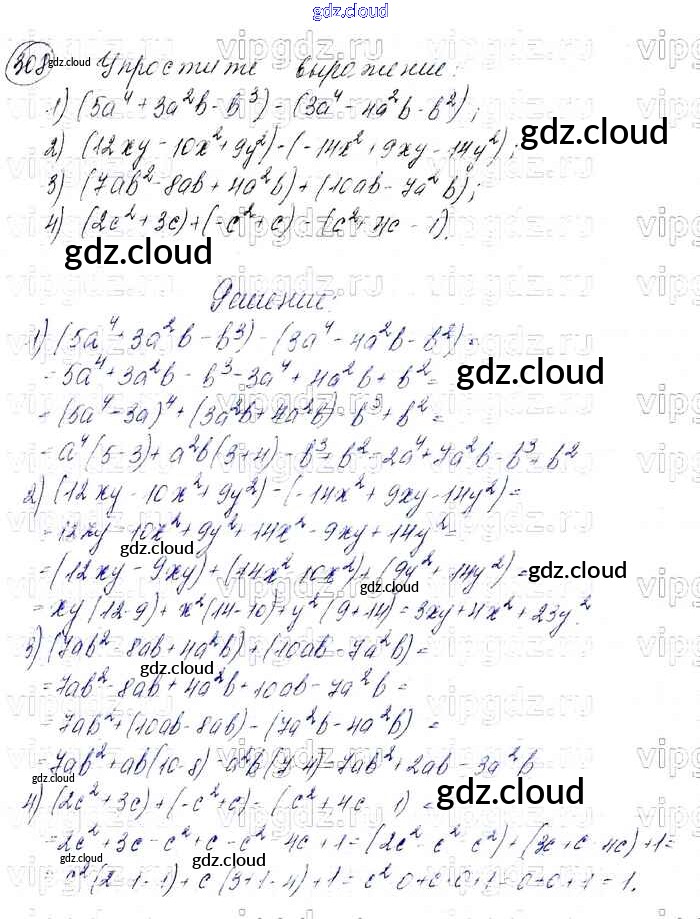 gdz.cloud
308 gdz.cloud Упростите выражение:
1) (5a⁴ + 3a²b - b³) - (3a⁴ - 4a²b - b²);
2) (12xy - 10x² + 9y²) - (-14x² + 9xy - 14y²);
gdz.cloud
3) (7ab² - 8ab + 4a²b) + (10ab - 7a²b);
4) (2c² + 3c) + (-c² + c) - (c² + 4c - 1).
gdz.cloud
Решение:
1) (5a⁴ + 3a²b - b³) - (3a⁴ - 4a²b - b²) =
= 5a⁴ + 3a²b - b³ - 3a⁴ + 4a²b + b² =
gdz.cloud
= (5a⁴ - 3a)⁴ + (3a²b + 4a²b) - b³ + b² =
= a⁴(5-3) + a²b(3+4) - b³ + b² = 2a⁴ + 7a²b - b³ + b²
2) (12xy - 10x² + 9y²) - (-14x² + 9xy - 14y²) =
= 12xy - 10x² + 9y² + 14x² - 9xy + 14y² =
gdz.cloud
= (12xy - 9xy) + (14x² - 10x²) + (9y² + 14y²) =
gdz.cloud
gdz.cloud
= xy(12-9) + x²(14-10) + y²(9+14) = 3xy + 4x² + 23y².
3) (7ab² - 8ab + 4a²b) + (10ab - 7a²b) =
gdz.cloud
= 7ab² - 8ab + 4a²b + 10ab - 7a²b =
= 7ab² + (10ab - 8ab) - (7a²b - 4a²b) =
= 7ab² + ab(10-8) - a²b(7-4) = 7ab² + 2ab - 3a²b
gdz.cloud
4) (2c² + 3c) + (-c² + c) - (c² + 4c - 1) =
gdz.cloud
= 2c² + 3c - c² + c - c² - 4c + 1 = (2c² - c² - c²) + (3c + c - 4c) + 1 =
gdz.cloud
gdz.cloud
= c²(2-1-1) + c(3+1-4) + 1 = c²·0 + c·0 + 1 = 0 + 0 + 1 = 1.